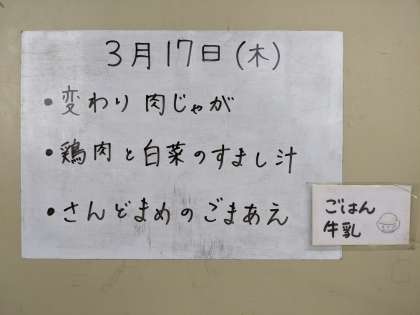 3月17日(木)
・変わり肉じゃが
・鶏肉と白菜のすまし汁
・さんどまめのごまあえ
ごはん
牛乳